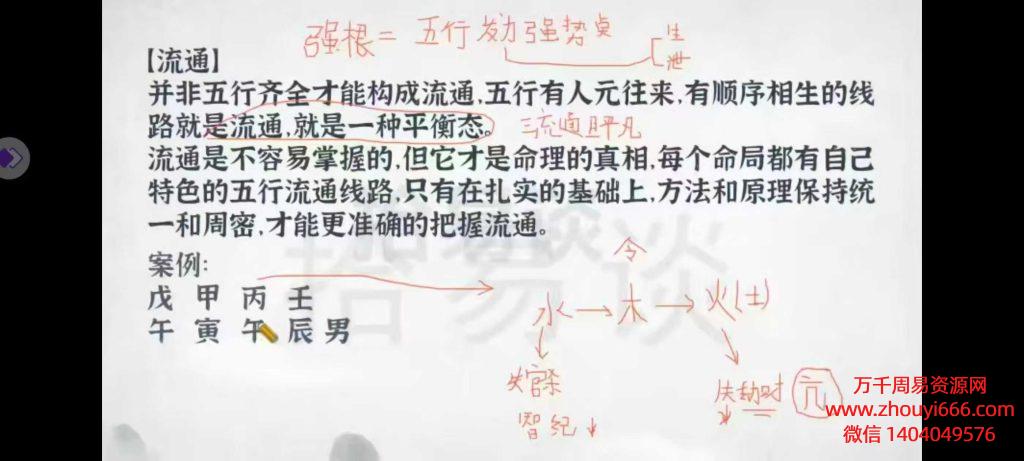 强根＝五行发力强势点
生
泄
【流通】
并非五行齐全才能构成流通,五行有人元往来,有顺序相生的线
路就是流通,就是一种平衡态。
三流通且平凡
流通是不容易掌握的,但它才是命理的真相,每个命局都有自己
特色的五行流通线路,只有在扎实的基础上,方法和原理保持统
一和周密,才能更准确的把握流通。
案例:
令
戊 甲 丙 壬
午 寅 午 辰 男
水→木→火(土)
失官杀
智 纪↓
失劫财 亢
易谈
万千周易资源网
www.zhouyi666.com
微信 1404049576